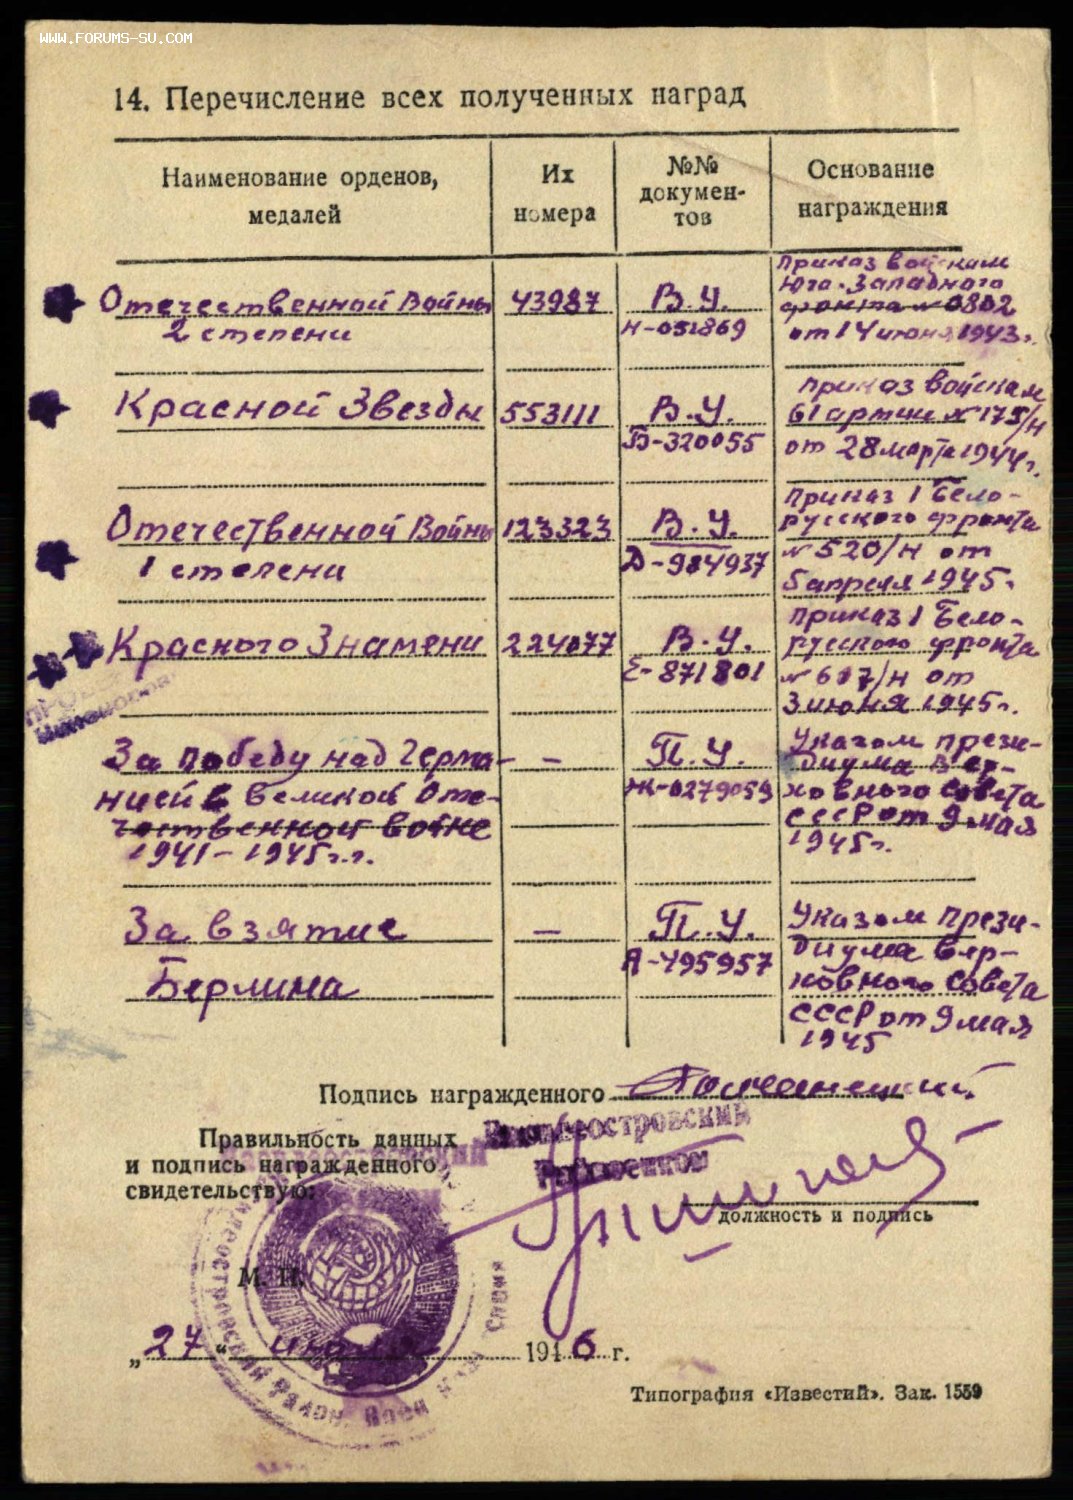 WWW.FORUMS-SU.COM
14. Перечисление всех полученных наград
Наименование орденов,
медалей
Их
номера
№№
докумен-
тов
Основание
награждения
Отечественной Войны
2 степени
43987
В.У.
Н-051869
Приказ войскам
Юго-Западного
фронта № 0802
от 14 июня 1943 г.
Красной Звезды
553111
В.У.
Б-320055
Приказ войскам
61 армии № 175/н
от 28 марта 1944 г.
Отечественной Войны
1 степени
123323
В.У.
Д-984937
Приказ 1 Бело-
русского фронта
№ 520/н от
5 апреля 1945 г.
Красного Знамени
224077
В.У.
Е-871801
Приказ 1 Бело-
русского фронта
№ 617/н от
3 июня 1945 г.
За победу над Герма-
нией в Великой Оте-
чественной войне
1941-1945 г.г.
– –
П.У.
Ж-0279059
Указом прези-
диума Вер-
ховного Совета
СССР от 9 мая
1945 г.
За взятие
Берлина
–
П.У.
А-495957
Указом прези-
диума Вер-
ховного Совета
СССР от 9 мая
1945
Подпись награжденного
Правильность данных
и подпись награжденного
свидетельствую:
Василеостровский
Райвоенком
должность и подпись
М. П.
„27“ 1946 г.
Типография «Известий». Зак. 1559